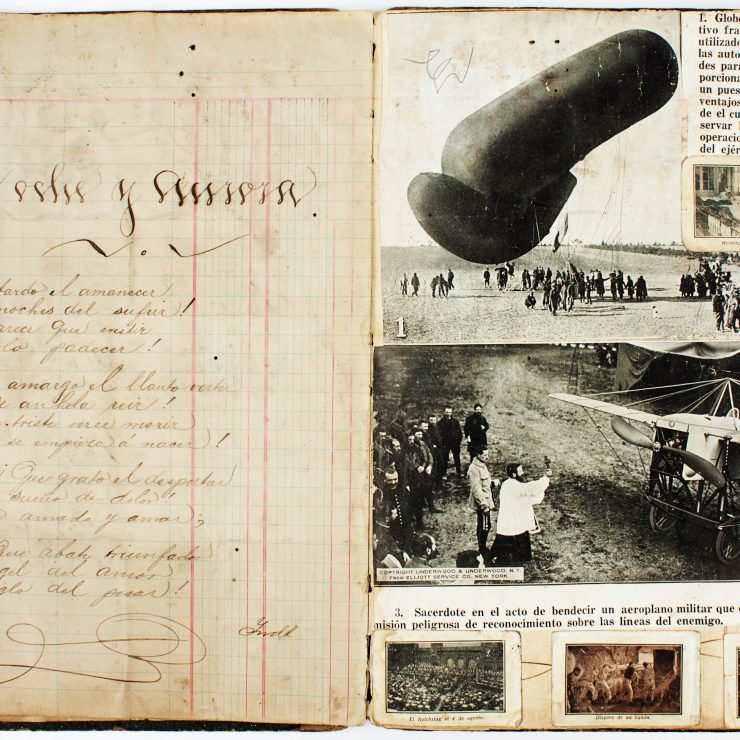 y aurora
tardo el amanecer
noches del sufrir!
arece que existir
padecer!
amargo el llanto verter
reir!
triste verse morir
se empieza á nacer!
Que grato el despertar
sueño de dolor!
amado y amar;
Que abate triunfador
gel del amor
glo del pesar!
I. Globo
tivo fra
utilizado
las auto
des para
porciona
un pues
ventajos
de el cu
servar l
operacio
del ejér
Hospita
1
COPYRIGHT UNDERWOOD & UNDERWOOD, N.Y.
FROM ELLIOTT SERVICE CO., NEW YORK
3. Sacerdote en el acto de bendecir un aeroplano militar que
misión peligrosa de reconocimiento sobre las líneas del enemigo.
El Reichstag el 4 de agosto.
Disparo de un cañón.